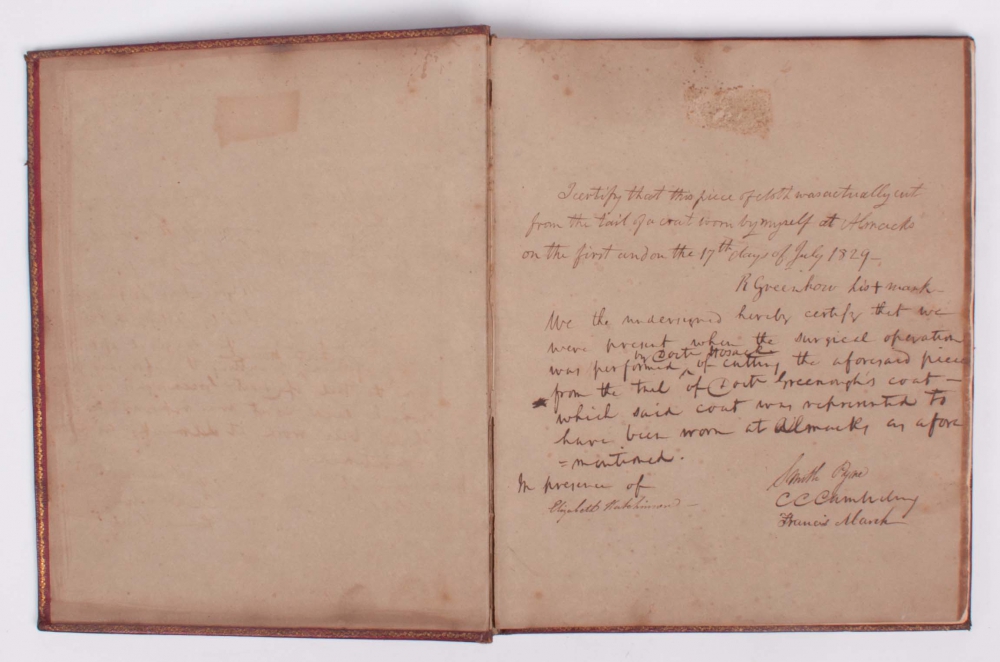 I certify that this piece of cloth was actually cut
from the tail of a coat worn by myself at Almacks
on the first and on the 17th days of July 1829 –
R Greenhow his + mark
We the undersigned hereby certify that we
were present when the surgical operation
was performed by Doctr Hosack of cutting the aforesaid piece
from the tail of Doctr Greenough's coat –
which said coat was represented to
have been worn at Almacks as afore
= mentioned.
In presence of
Elizabeth Hutchinson –
Smith Pyne
C C Cambreleng
Francis Marsh